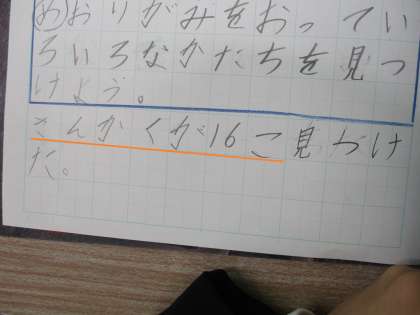 めおりがみをおってい
ろいろなかたちを見つ
けよう。
さんかくが16こ見つけ
た。